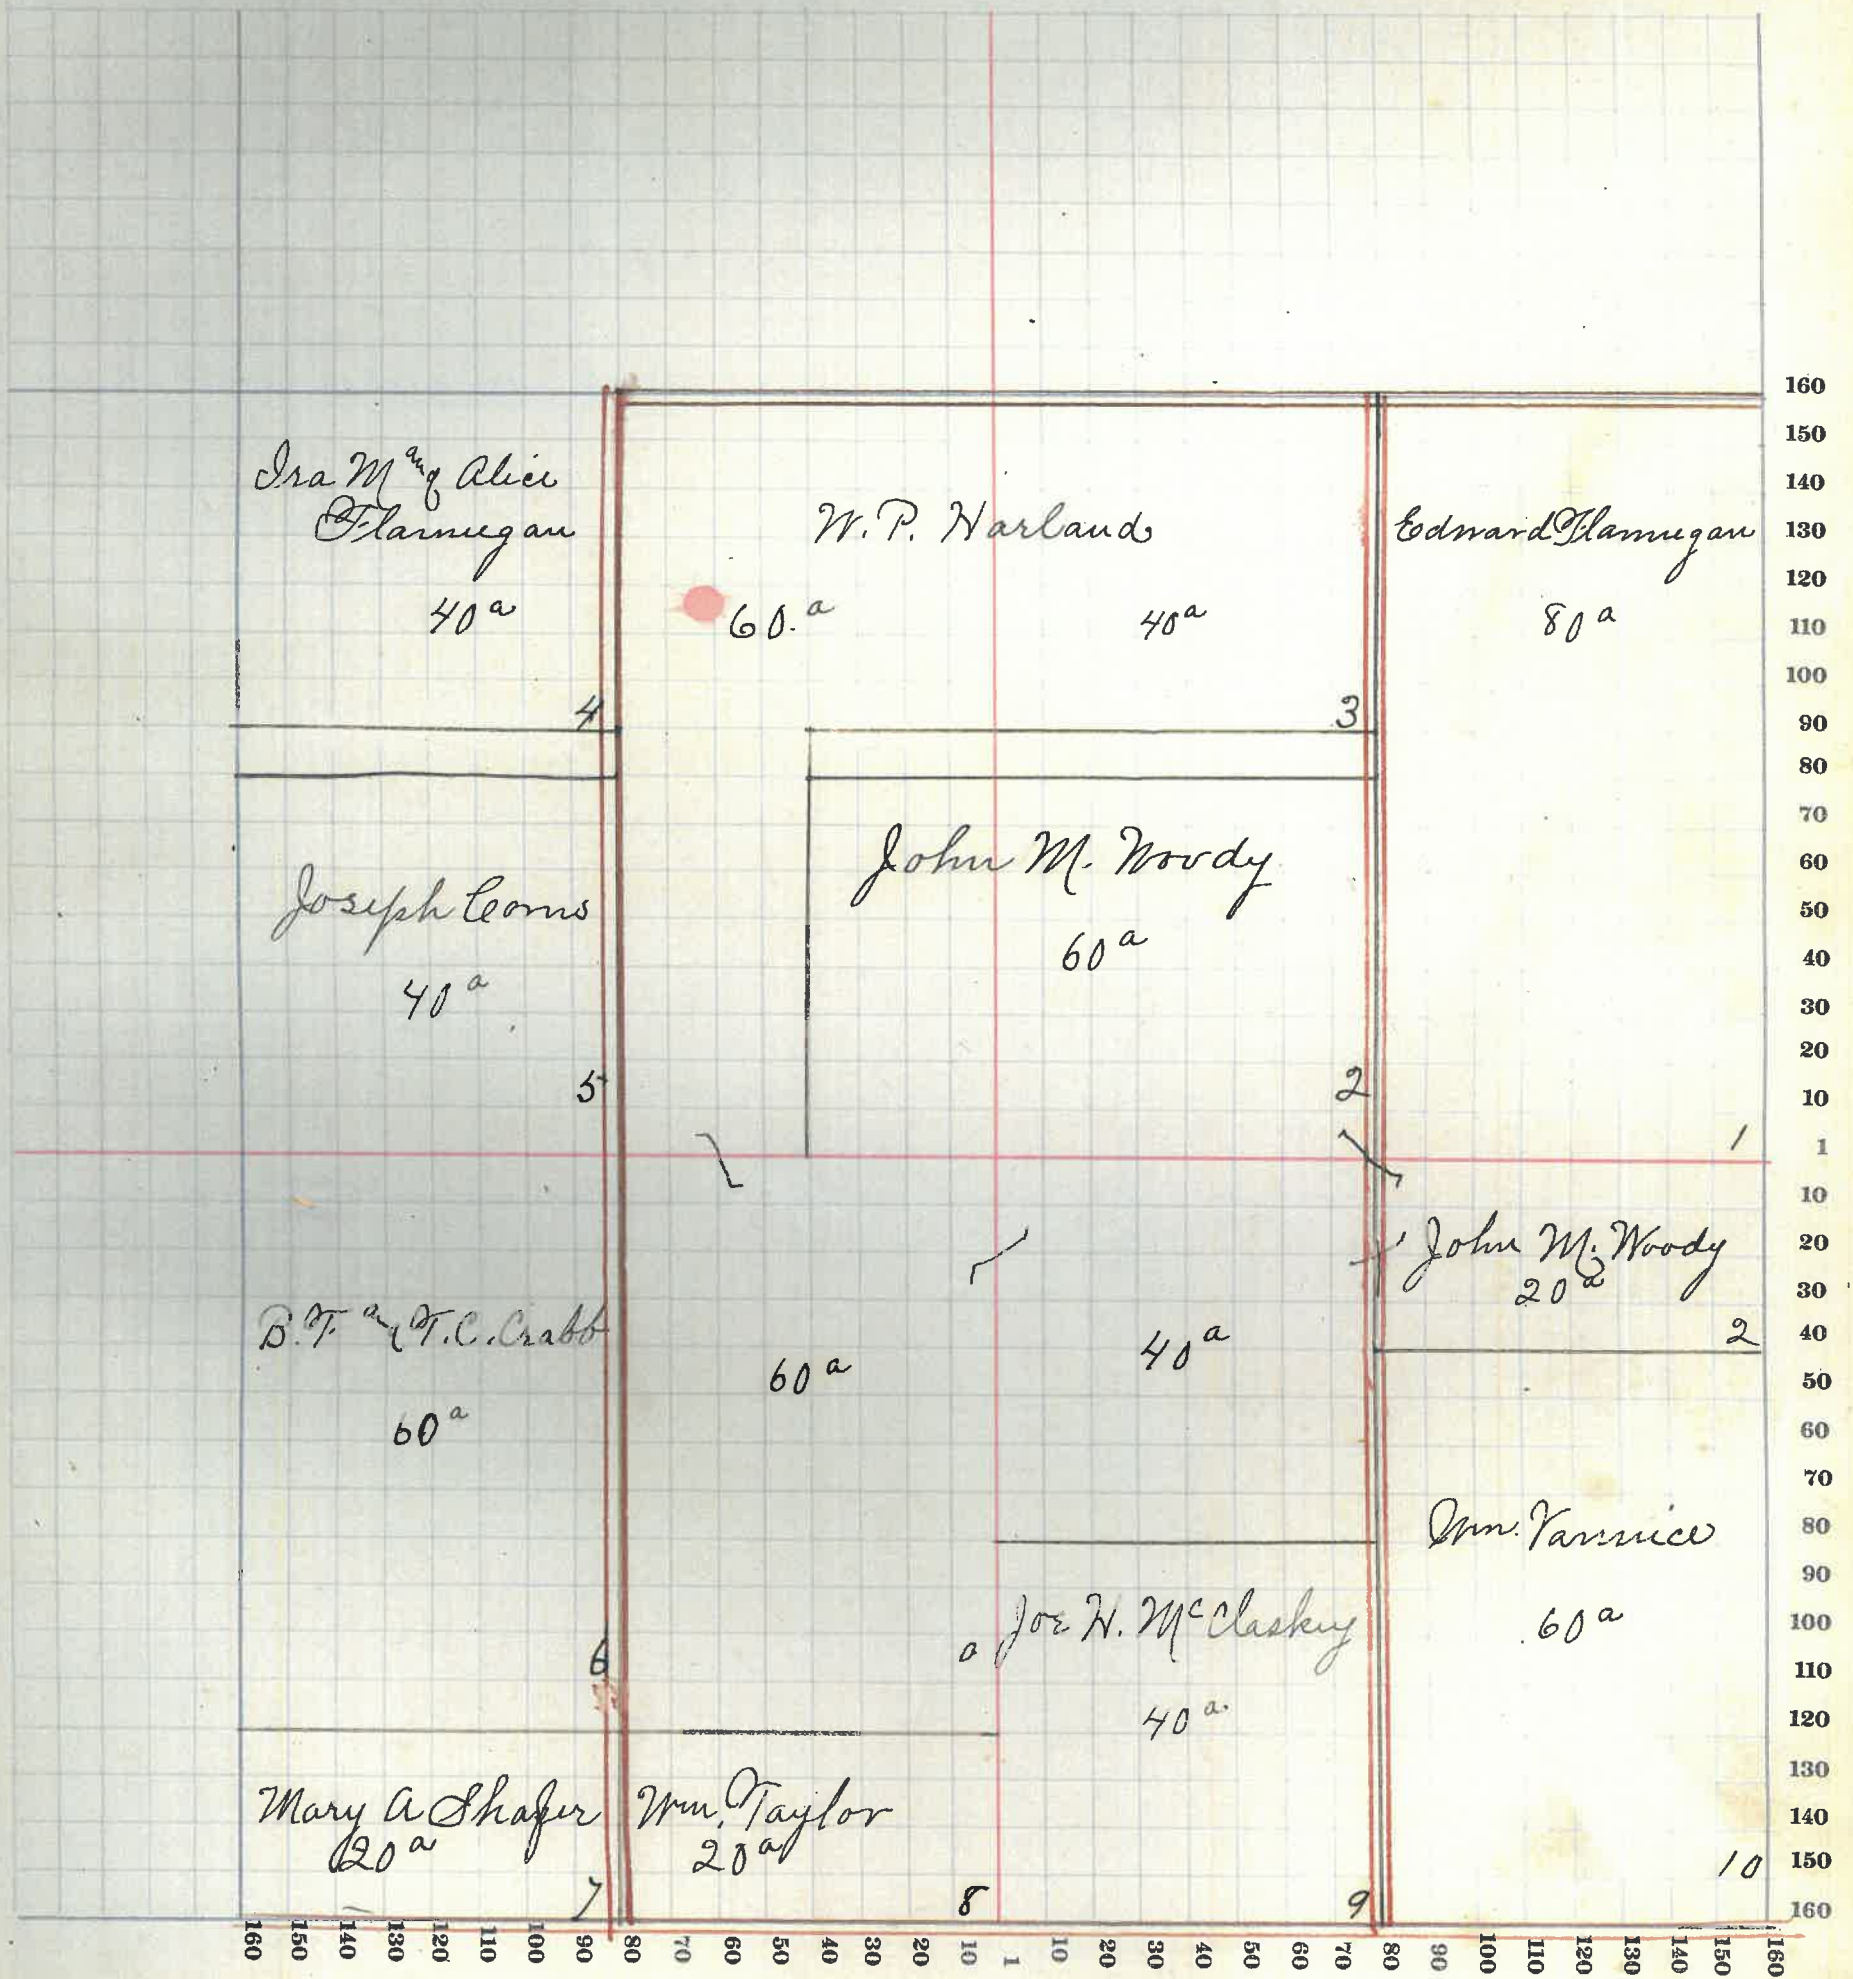 Ira M and Alice
Flannegan
40 a
4
W. P. Harland
60. a
40 a
3
Edward Flannegan
80 a
1
Joseph Coms
40 a
5
John M. Woody
60 a
2
John M. Woody
20 a
2
B. F. and T. C. Crabb
60 a
6
60 a
40 a
Wm. Vannice
60 a
10
a Joe H. McClaskey
40 a.
9
Mary A Shafer
20 a
7
Wm. Taylor
20 a
8
160
150
140
130
120
110
100
90
80
70
60
50
40
30
20
10
1
10
20
30
40
50
60
70
80
90
100
110
120
130
140
150
160
160 150 140 130 120 110 100 90 80 70 60 50 40 30 20 10 1 10 20 30 40 50 60 70 80 90 100 110 120 130 140 150 160